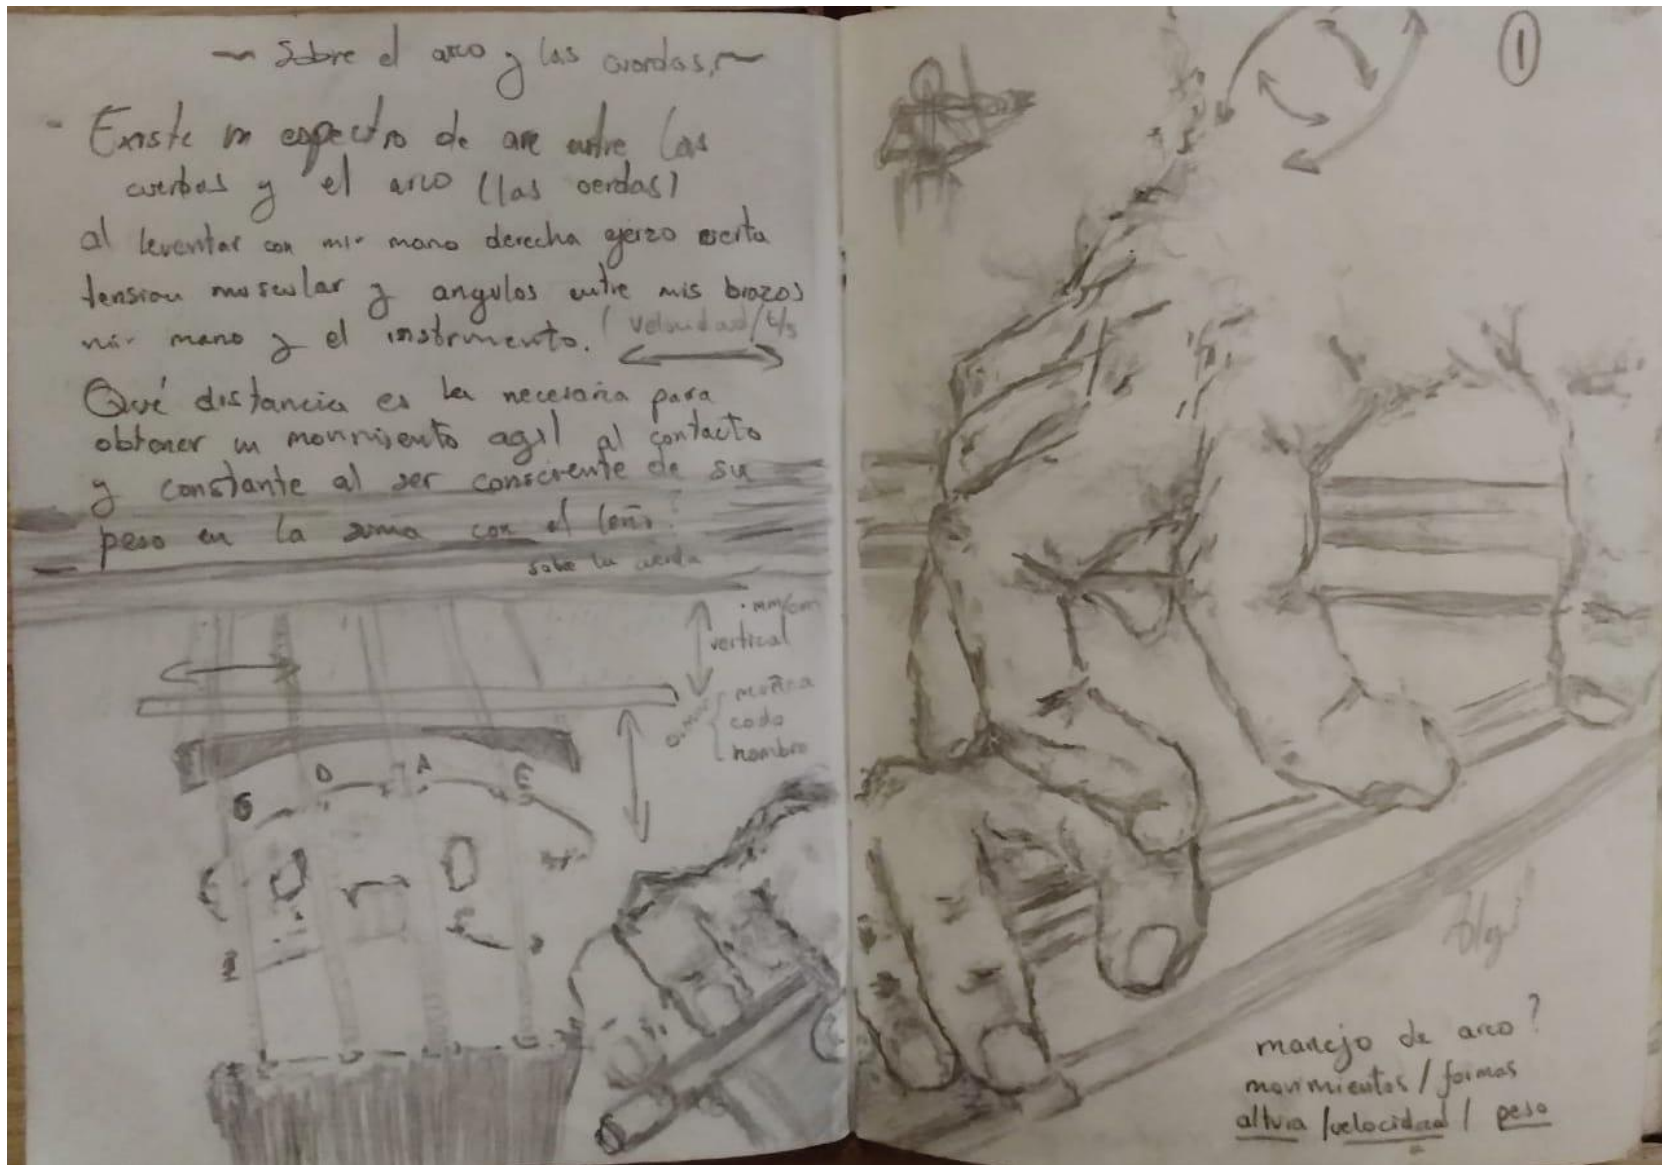 ~ Sobre el arco y las cuerdas. ~
- Existe un espectro de aire entre las
cuerbas y el arco (las cerdas)
al leventar con mi mano derecha ejerzo cierta
tension muscular y angulos entre mis brazos
mi mano y el instrumento.
(velocidad/t/s
Qué distancia es la necesaria para
obtener un movimiento agil al contacto
y constante al ser consciente de su
peso en la zona con el
sobre la cuerda
. mm/cm
vertical
muñeca
codo
hombro
G D A E
1
manejo de arco?
movimientos / formas
altura / velocidad / peso